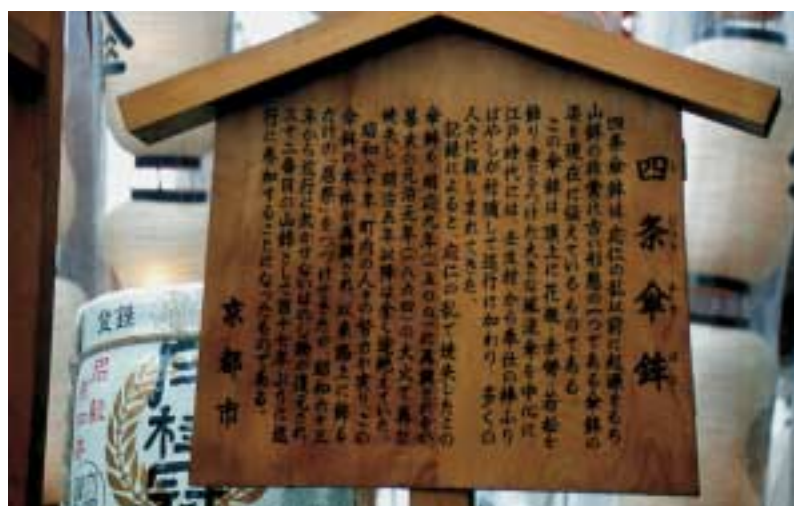 四条傘鉾
四条傘鉾は、応仁の乱以前に起源をもち
山鉾の非常に古い形態の一つである傘鉾の
姿を現在に伝えているものである。
この傘鉾は、頂上に花瓶・赤幣・若松を
飾り、垂りをつけた大きな風流傘を中心に
江戸時代には、壬生村から奉仕の棒ふり
ばやしが付随して巡行に加わり、多くの
人々に親しまれてきた。
記録によると、応仁の乱で焼失したこの
傘鉾も、明応九年(一五〇〇)に再興されたが
幕末の元治元年(一八六四)の大火で再び
焼失し、明治五年以降は全く途絶えていた。
昭和六十年、町内の人々の努力が実りこの
傘鉾の本体が再興され、以来、路上に飾る
だけの「居祭」をつづけてきたが、昭和六十三
年から巡行に欠かせないはやし物が復元され、
三十二番目の山鉾として百十七年ぶりに巡
行に参加することになったものである。
京都市
傘
登録
月桂冠